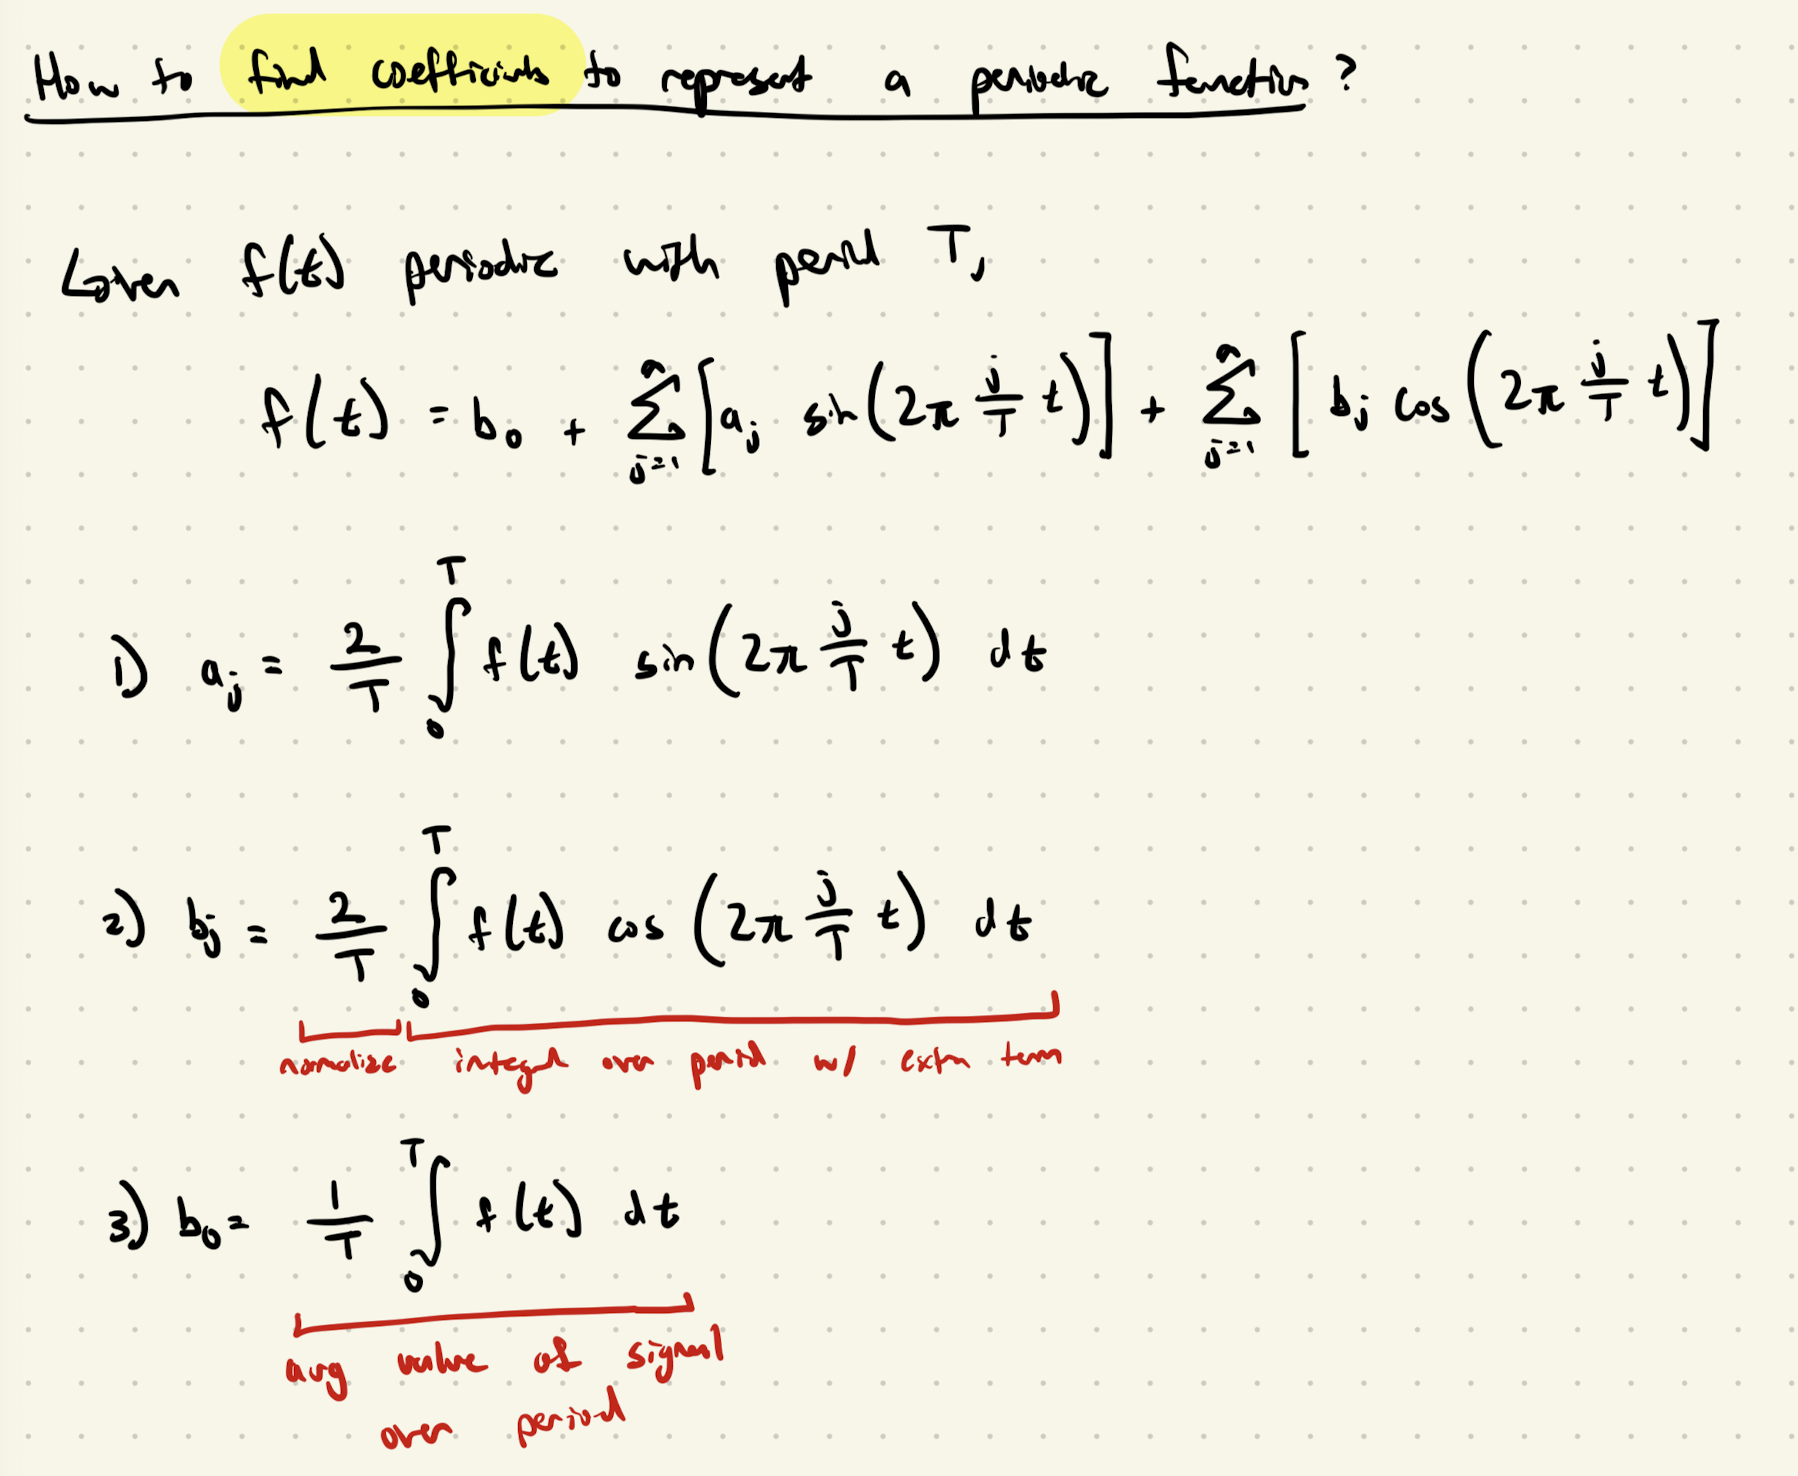 How to find coefficients to represent a periodic function?
Given f(t) periodic with period T,
f(t) = b₀ + Σ_{j=1}^{n} [a_j sin(2π j/T t)] + Σ_{j=1}^{n} [b_j cos(2π j/T t)]
1) a_j = 2/T ∫₀ᵀ f(t) sin(2π j/T t) dt
2) b_j = 2/T ∫₀ᵀ f(t) cos(2π j/T t) dt
normalize integral over period w/ extra term
3) b₀ = 1/T ∫₀ᵀ f(t) dt
avg value of signal
over period